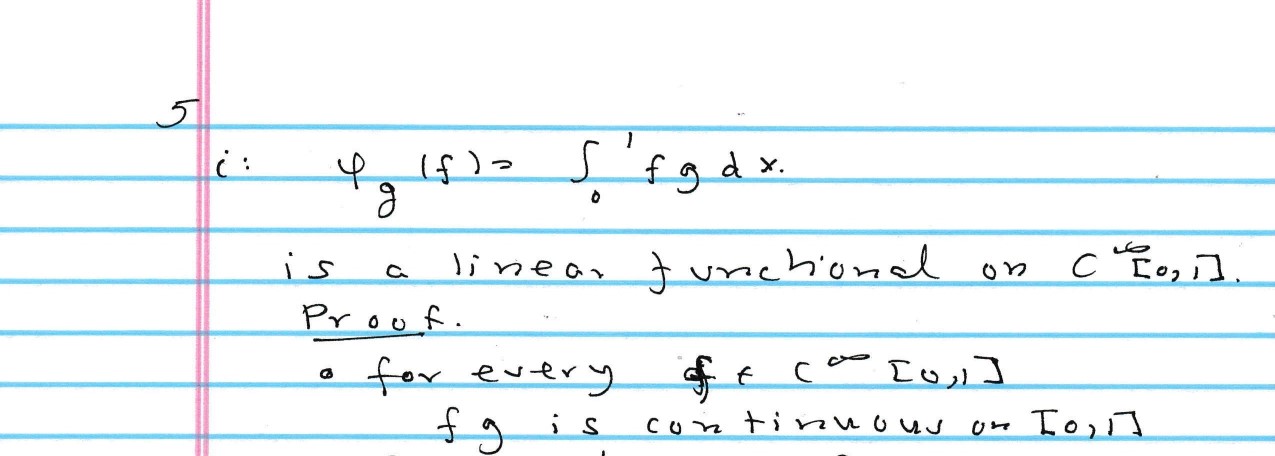 5
i: φ_g (f) = ∫₀¹ f g d x.
is a linear functional on C^∞[0,1].
Proof.
• for every f ∈ C^∞ [0,1]
f g is continuous on [0,1]